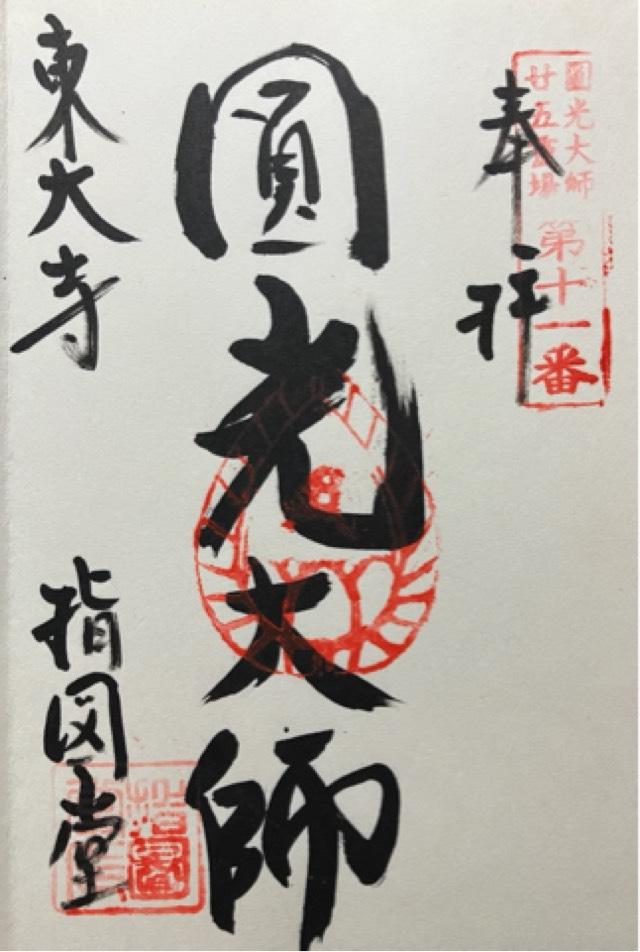 奉拝
圓光大師
廿五霊場
第十一番
圓光大師
東大寺
指図堂